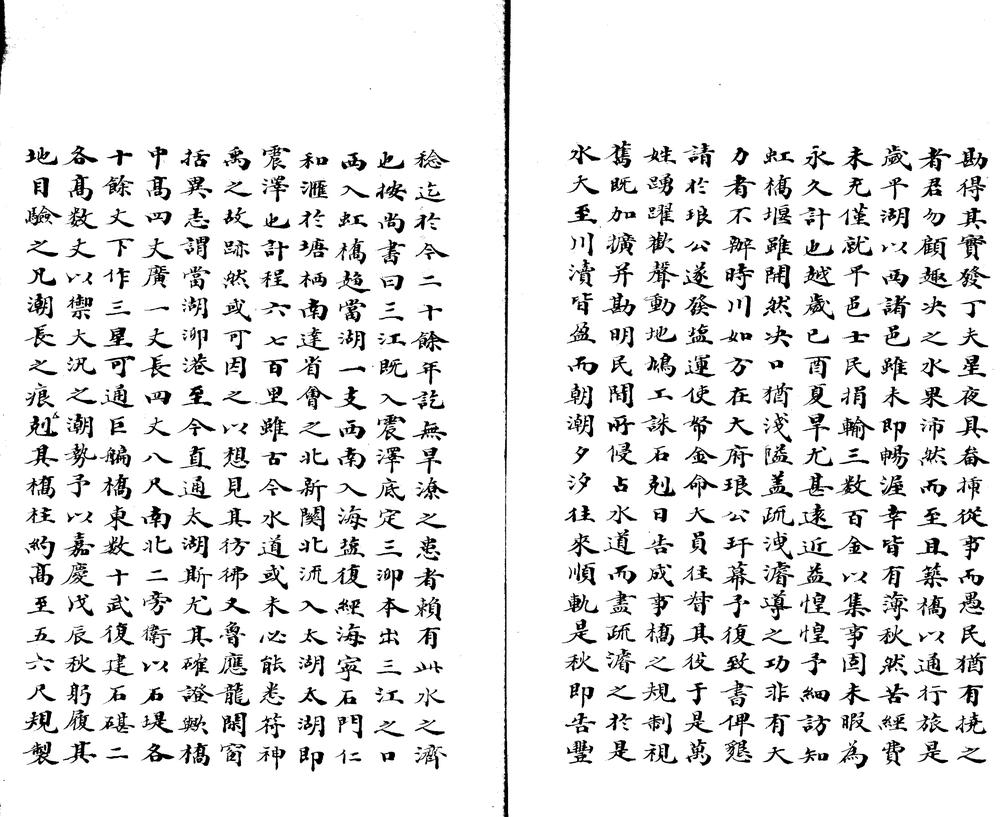 勘得其實發丁夫星夜具畚揷從事而愚民猶有撓之
者君勿顧趣决之水果沛然而至且築橋以通行旅是
歲平湖以西諸邑雖未即暢渥幸皆有薄秋然苦經費
未充僅就平邑士民捐輸三数百金以集事固未暇為
永久計也越歲己酉夏旱尤甚遠近益惶惶予細訪知
虹橋堰雖開然决口猶淺隘盖疏洩濬導之功非有大
力者不辦時川如方在大府琅公玕幕予復致書俾懇
請於琅公遂發塩運使帑金命大員往督其役于是萬
姓踴躍歡聲動地鳩工誅石剋日告成事橋之規制視
舊既加擴并勘明民間所侵占水道而畫疏濬之於是
水大至川瀆皆盈而朝潮夕汐往來順軌是秋即告豐
稔迄於今二十餘年訖無旱潦之患者賴有此水之濟
也按尚書曰三江既入震澤底定三泖本出三江之口
而入虹橋趋當湖一支西南入海塩復經海寧石門仁
和滙於塘栖南達省會之北新関北流入太湖太湖即
震澤也計程六七百里雖古今水道或未必能悉符神
禹之故跡然或可因之以想見其彷彿又魯應龍閑窗
括異志謂當湖泖港至今直通太湖斯尤其確證歟橋
中高四丈廣一丈長四丈八尺南北二旁衛以石堤各
十餘丈下作三星可通巨艑橋東数十武復建石磡二
各高数丈以禦大汛之潮勢予以嘉慶戊辰秋躬履其
地目驗之凡潮長之痕剋其橋柱約高至五六尺規製